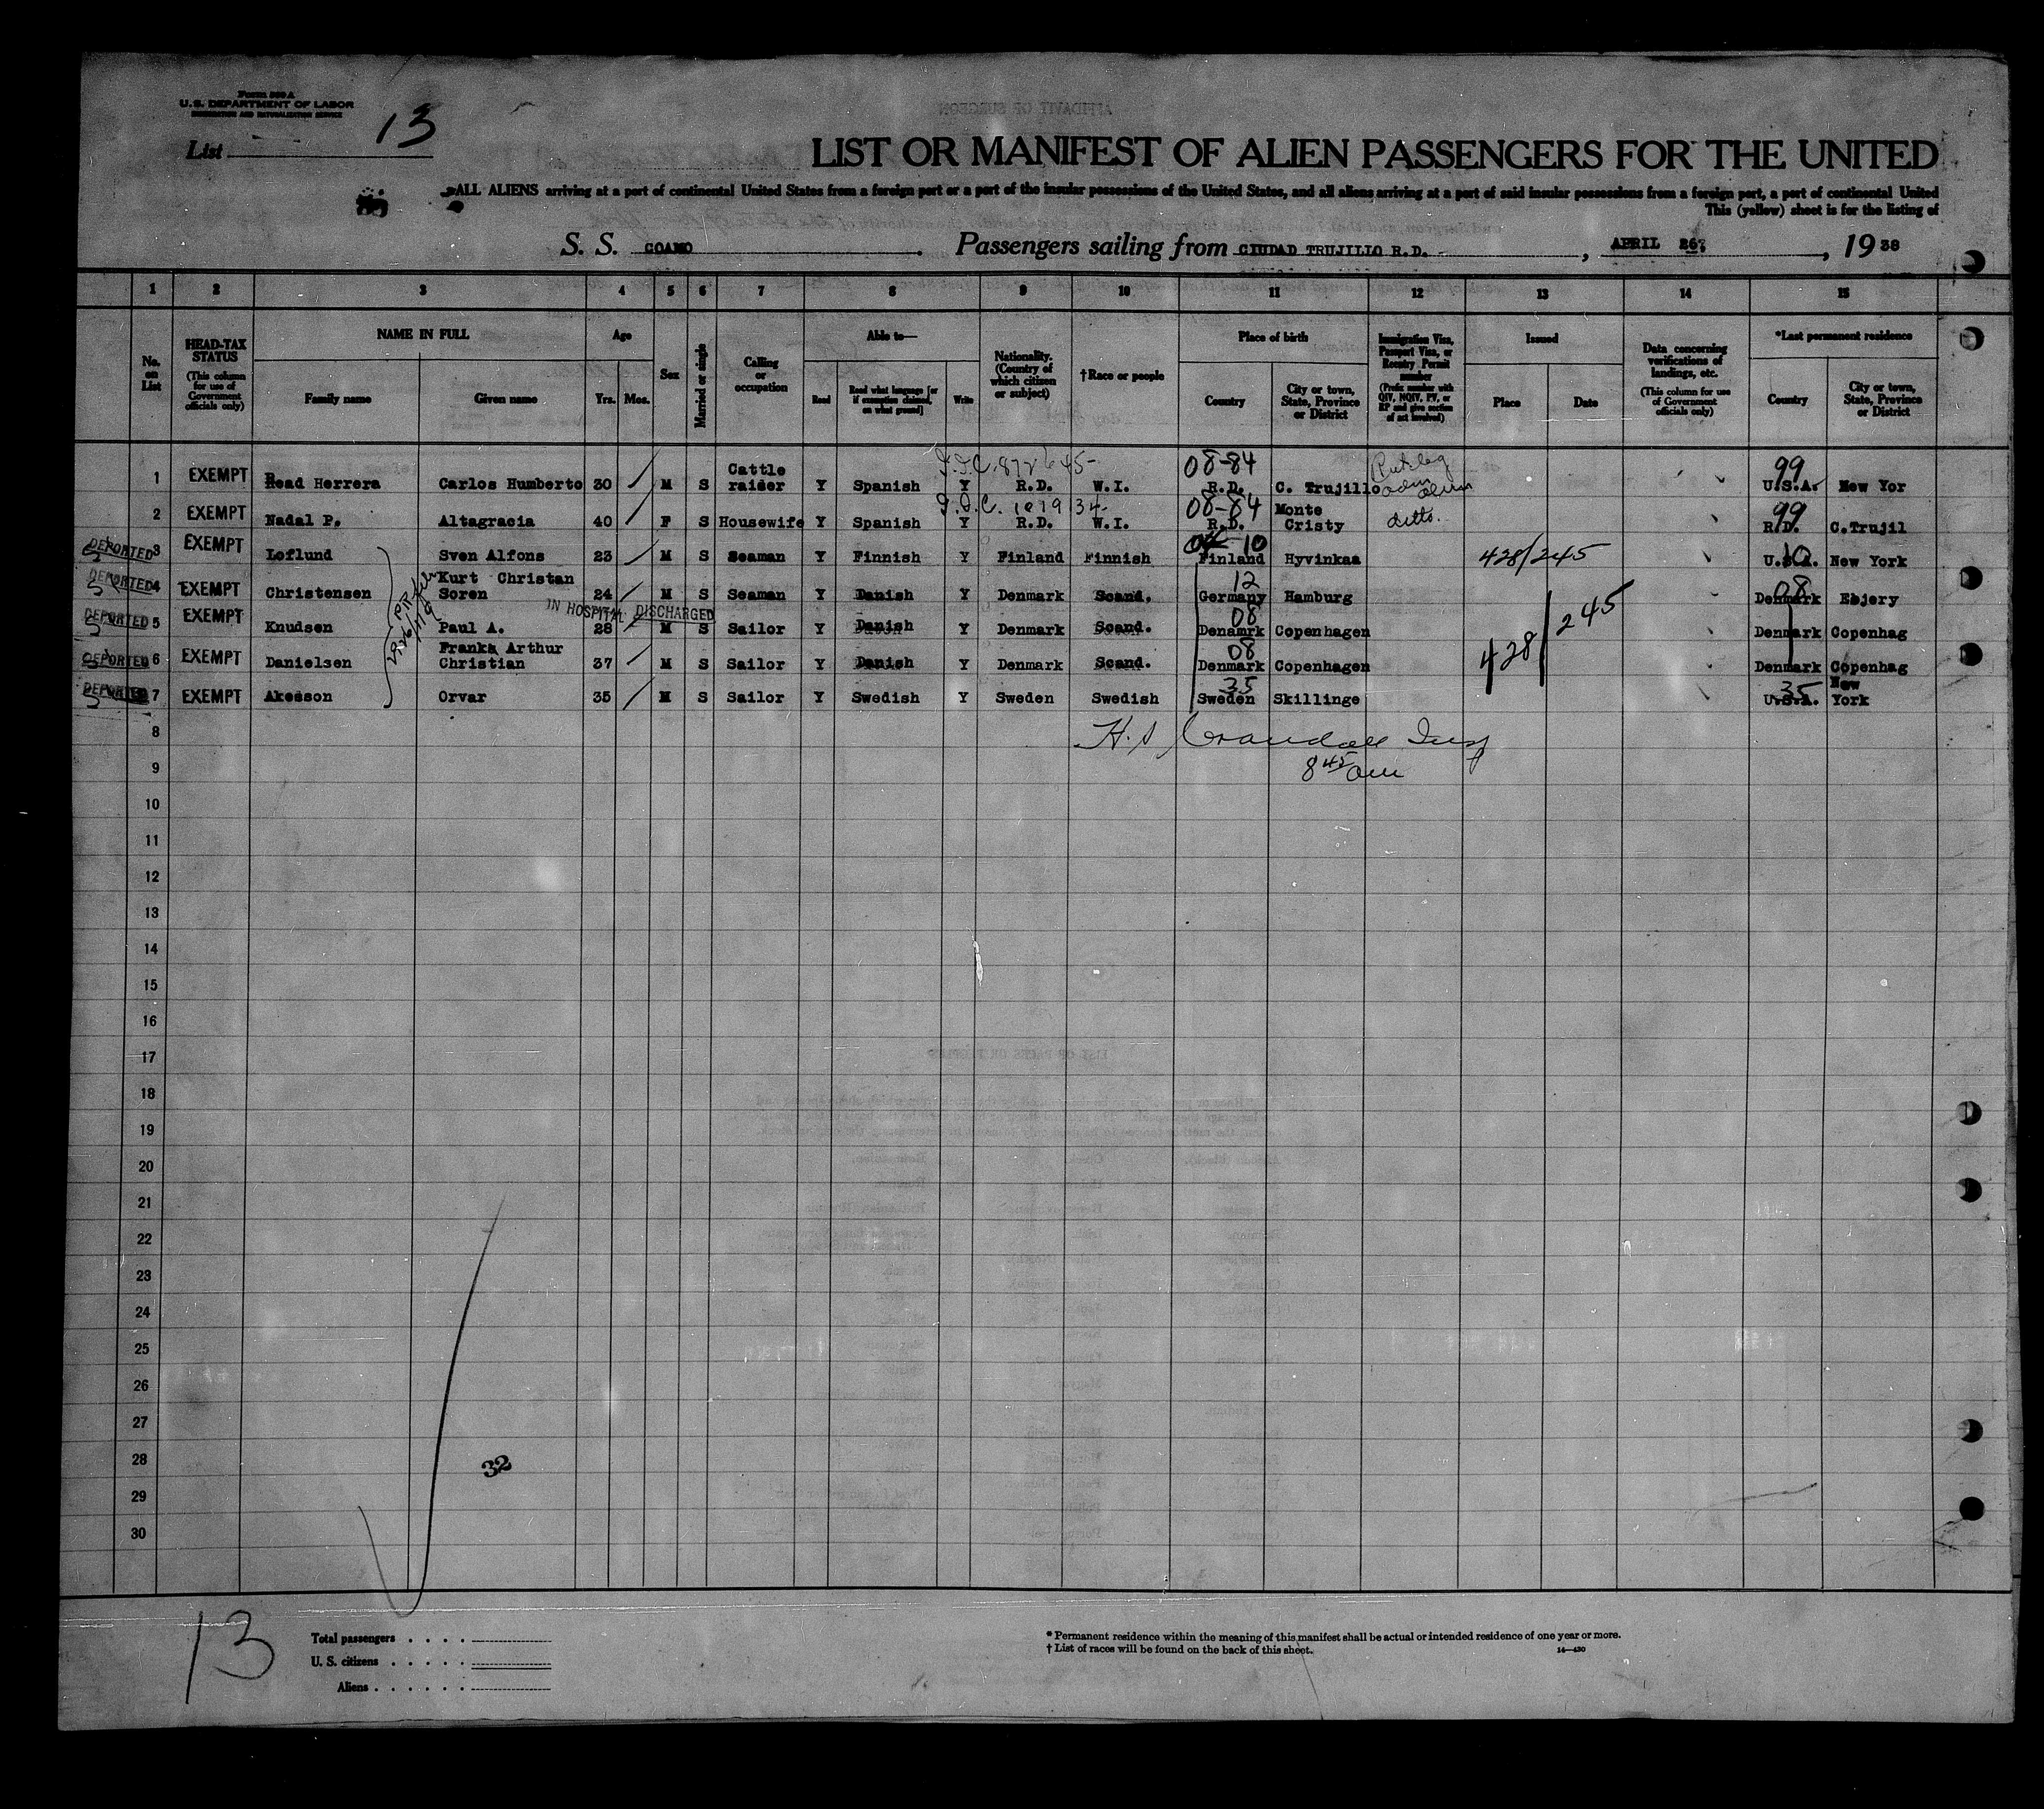 Form 500 A
U.S. DEPARTMENT OF LABOR
IMMIGRATION AND NATURALIZATION SERVICE
List 13
LIST OR MANIFEST OF ALIEN PASSENGERS FOR THE UNITED
ALL ALIENS arriving at a port of continental United States from a foreign port or a port of the insular possessions of the United States, and all aliens arriving at a port of said insular possessions from a foreign port, a port of continental United
This (yellow) sheet is for the listing of
S. S. COAMO. Passengers sailing from CIUDAD TRUJILLO R.D. , APRIL 26: , 19 38
1 2 3 4 5 6 7 8 9 10 11 12 13 14 15
No. on List
HEAD-TAX STATUS
(This column for use of Government officials only)
NAME IN FULL
Family name Given name
Age
Yrs. Mos.
Sex
Married or single
Calling or occupation
Able to—
Read Read what language [or if exemption claimed, on what ground] Write
Nationality. (Country of which citizen or subject)
†Race or people
Place of birth
Country City or town, State, Province or District
Immigration Visa, Passport Visa, or Reentry Permit number
(Prefix number with QIV, NQIV, PV, or RP and give section of act involved)
Issued
Place Date
Data concerning verifications of landings, etc.
(This column for use of Government officials only)
*Last permanent residence
Country City or town, State, Province or District
1 EXEMPT Read Herrera Carlos Humberto 30 M S Cattle raider Y Spanish Y R.D. W.I. 08-84 R.D. C. Trujillo 99 U.S.A. New Yor
2 EXEMPT Nadal P. Altagracia 40 F S Housewife Y Spanish Y R.D. W.I. 08-84 R.D. Monte Cristy ditto. 99 R.D. C.Trujil
DEPORTED 3 EXEMPT Loflund Sven Alfons 23 M S Seaman Y Finnish Y Finland Finnish 10 Finland Hyvinkaa 428/245 10 U.S.A. New York
DEPORTED 4 EXEMPT Christensen Kurt Christan Soren 24 M S Seaman Y Danish Y Denmark Scand. 12 Germany Hamburg 08 Denmark Ebjery
IN HOSPITAL DISCHARGED
DEPORTED 5 EXEMPT Knudsen Paul A. 28 M S Sailor Y Danish Y Denmark Scand. 08 Denamrk Copenhagen 428/245 Denmark Copenhag
DEPORTED 6 EXEMPT Danielsen Franka Arthur Christian 37 M S Sailor Y Danish Y Denmark Scand. 08 Denmark Copenhagen Denmark Copenhag
DEPORTED 7 EXEMPT Akesson Orvar 35 M S Sailor Y Swedish Y Sweden Swedish 35 Sweden Skillinge 35 U.S.A. New York
8
H. S. Crandall Insp
9
8 45 am
10
11
12
13
14
15
16
17
18
19
20
21
22
23
24
25
26
27
28
32
29
30
13
Total passengers
U. S. citizens
Aliens
* Permanent residence within the meaning of this manifest shall be actual or intended residence of one year or more.
† List of races will be found on the back of this sheet.
14—430